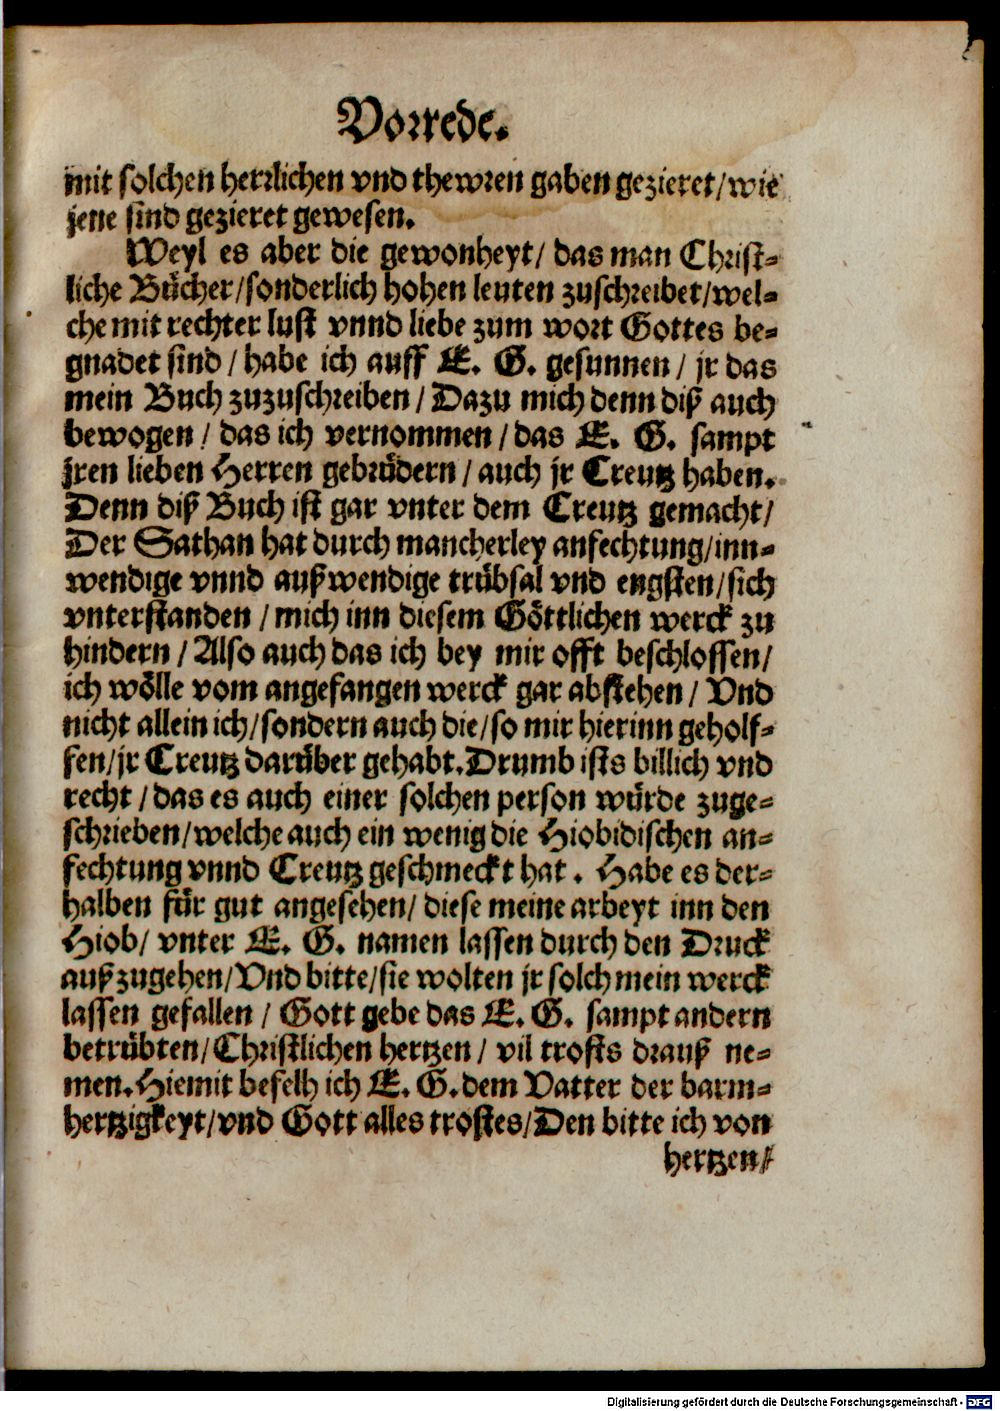 Vorrede.
mit solchen herrlichen vnd thewren gaben gezieret/wie
jene sind gezieret gewesen.
Weyl es aber die gewonheyt/ das man Christ-
liche Bücher/sonderlich hohen leuten zuschreibet/wel-
che mit rechter lust vnnd liebe zum wort Gottes be-
gnadet sind/ habe ich auff E. G. gesunnen/ jr das
mein Buch zuzuschreiben/ Dazu mich denn diß auch
bewogen/ das ich vernommen/ das E. G. sampt
jren lieben Herren gebrüdern/ auch jr Creutz haben.
Denn diß Buch ist gar vnter dem Creutz gemacht/
Der Sathan hat durch mancherley anfechtung/inn-
wendige vnnd außwendige trübsal vnd engsten/sich
vnterstanden/ mich inn diesem Göttlichen werck zu
hindern/ Also auch das ich bey mir offt beschlossen/
ich wölle vom angefangen werck gar abstehen/ Vnd
nicht allein ich/sondern auch die/so mir hierinn geholf-
fen/jr Creutz darüber gehabt.Drumb ists billich vnd
recht/ das es auch einer solchen person würde zuge-
schrieben/welche auch ein wenig die Hiobidischen an-
fechtung vnnd Creutz geschmeckt hat. Habe es der-
halben für gut angesehen/ diese meine arbeyt inn den
Hiob/ vnter E. G. namen lassen durch den Druck
außzugehen/Vnd bitte/sie wolten jr solch mein werck
lassen gefallen/ Gott gebe das E. G. sampt andern
betrübten/Christlichen hertzen/ vil trosts drauß ne-
men.Hiemit befelh ich E. G.dem Vatter der barm-
hertzigkeyt/vnd Gott alles trostes/Den bitte ich von
hertzen/
Digitalisierung gefördert durch die Deutsche Forschungsgemeinschaft - DFG